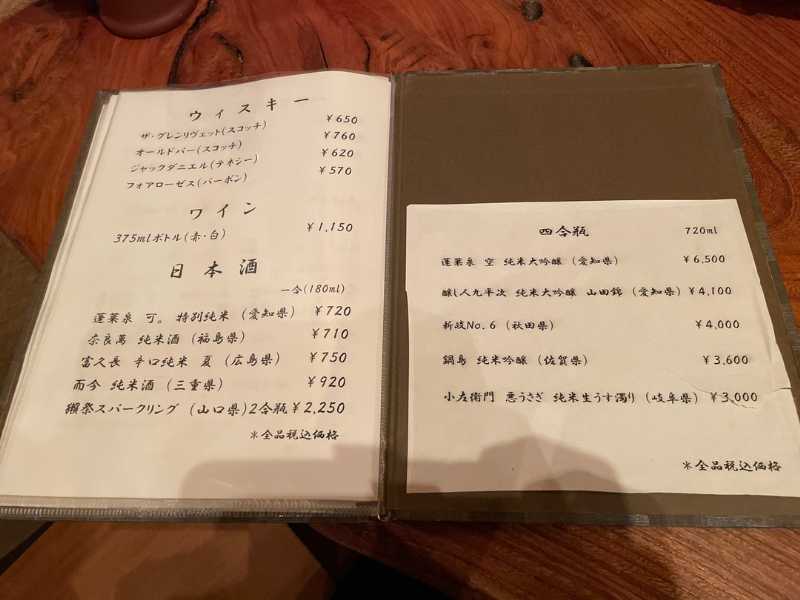 ウィスキー
ザ・グレンリヴェット(スコッチ) ¥650
オールドバー(スコッチ) ¥760
ジャックダニエル(テネシー) ¥620
フォアローゼス(バーボン) ¥570
ワイン
375mlボトル(赤・白) ¥1,150
日本酒
一合(180ml)
蓬莱泉 可。 特別純米 (愛知県) ¥720
奈良萬 純米酒 (福島県) ¥710
富久長 辛口純米 夏 (広島県) ¥750
而今 純米酒 (三重県) ¥920
獺祭スパークリング (山口県)2合瓶¥2,250
*全品税込価格
四合瓶 720ml
蓬莱泉 空 純米大吟醸 (愛知県) ¥6,500
醸し人九平次 純米大吟醸 山田錦 (愛知県) ¥4,100
新政No.6 (秋田県) ¥4,000
鍋島 純米吟醸 (佐賀県) ¥3,600
小左衛門 悪うさぎ 純米生うす濁り (岐阜県) ¥3,000
*全品税込価格